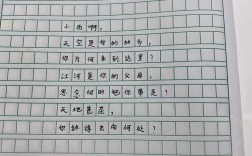 小雨啊，
天空是你的故乡，
你为何来到这里？
江河是你的父母，
思念何时把你带走？
天地茫茫，
你缺将去向何处？